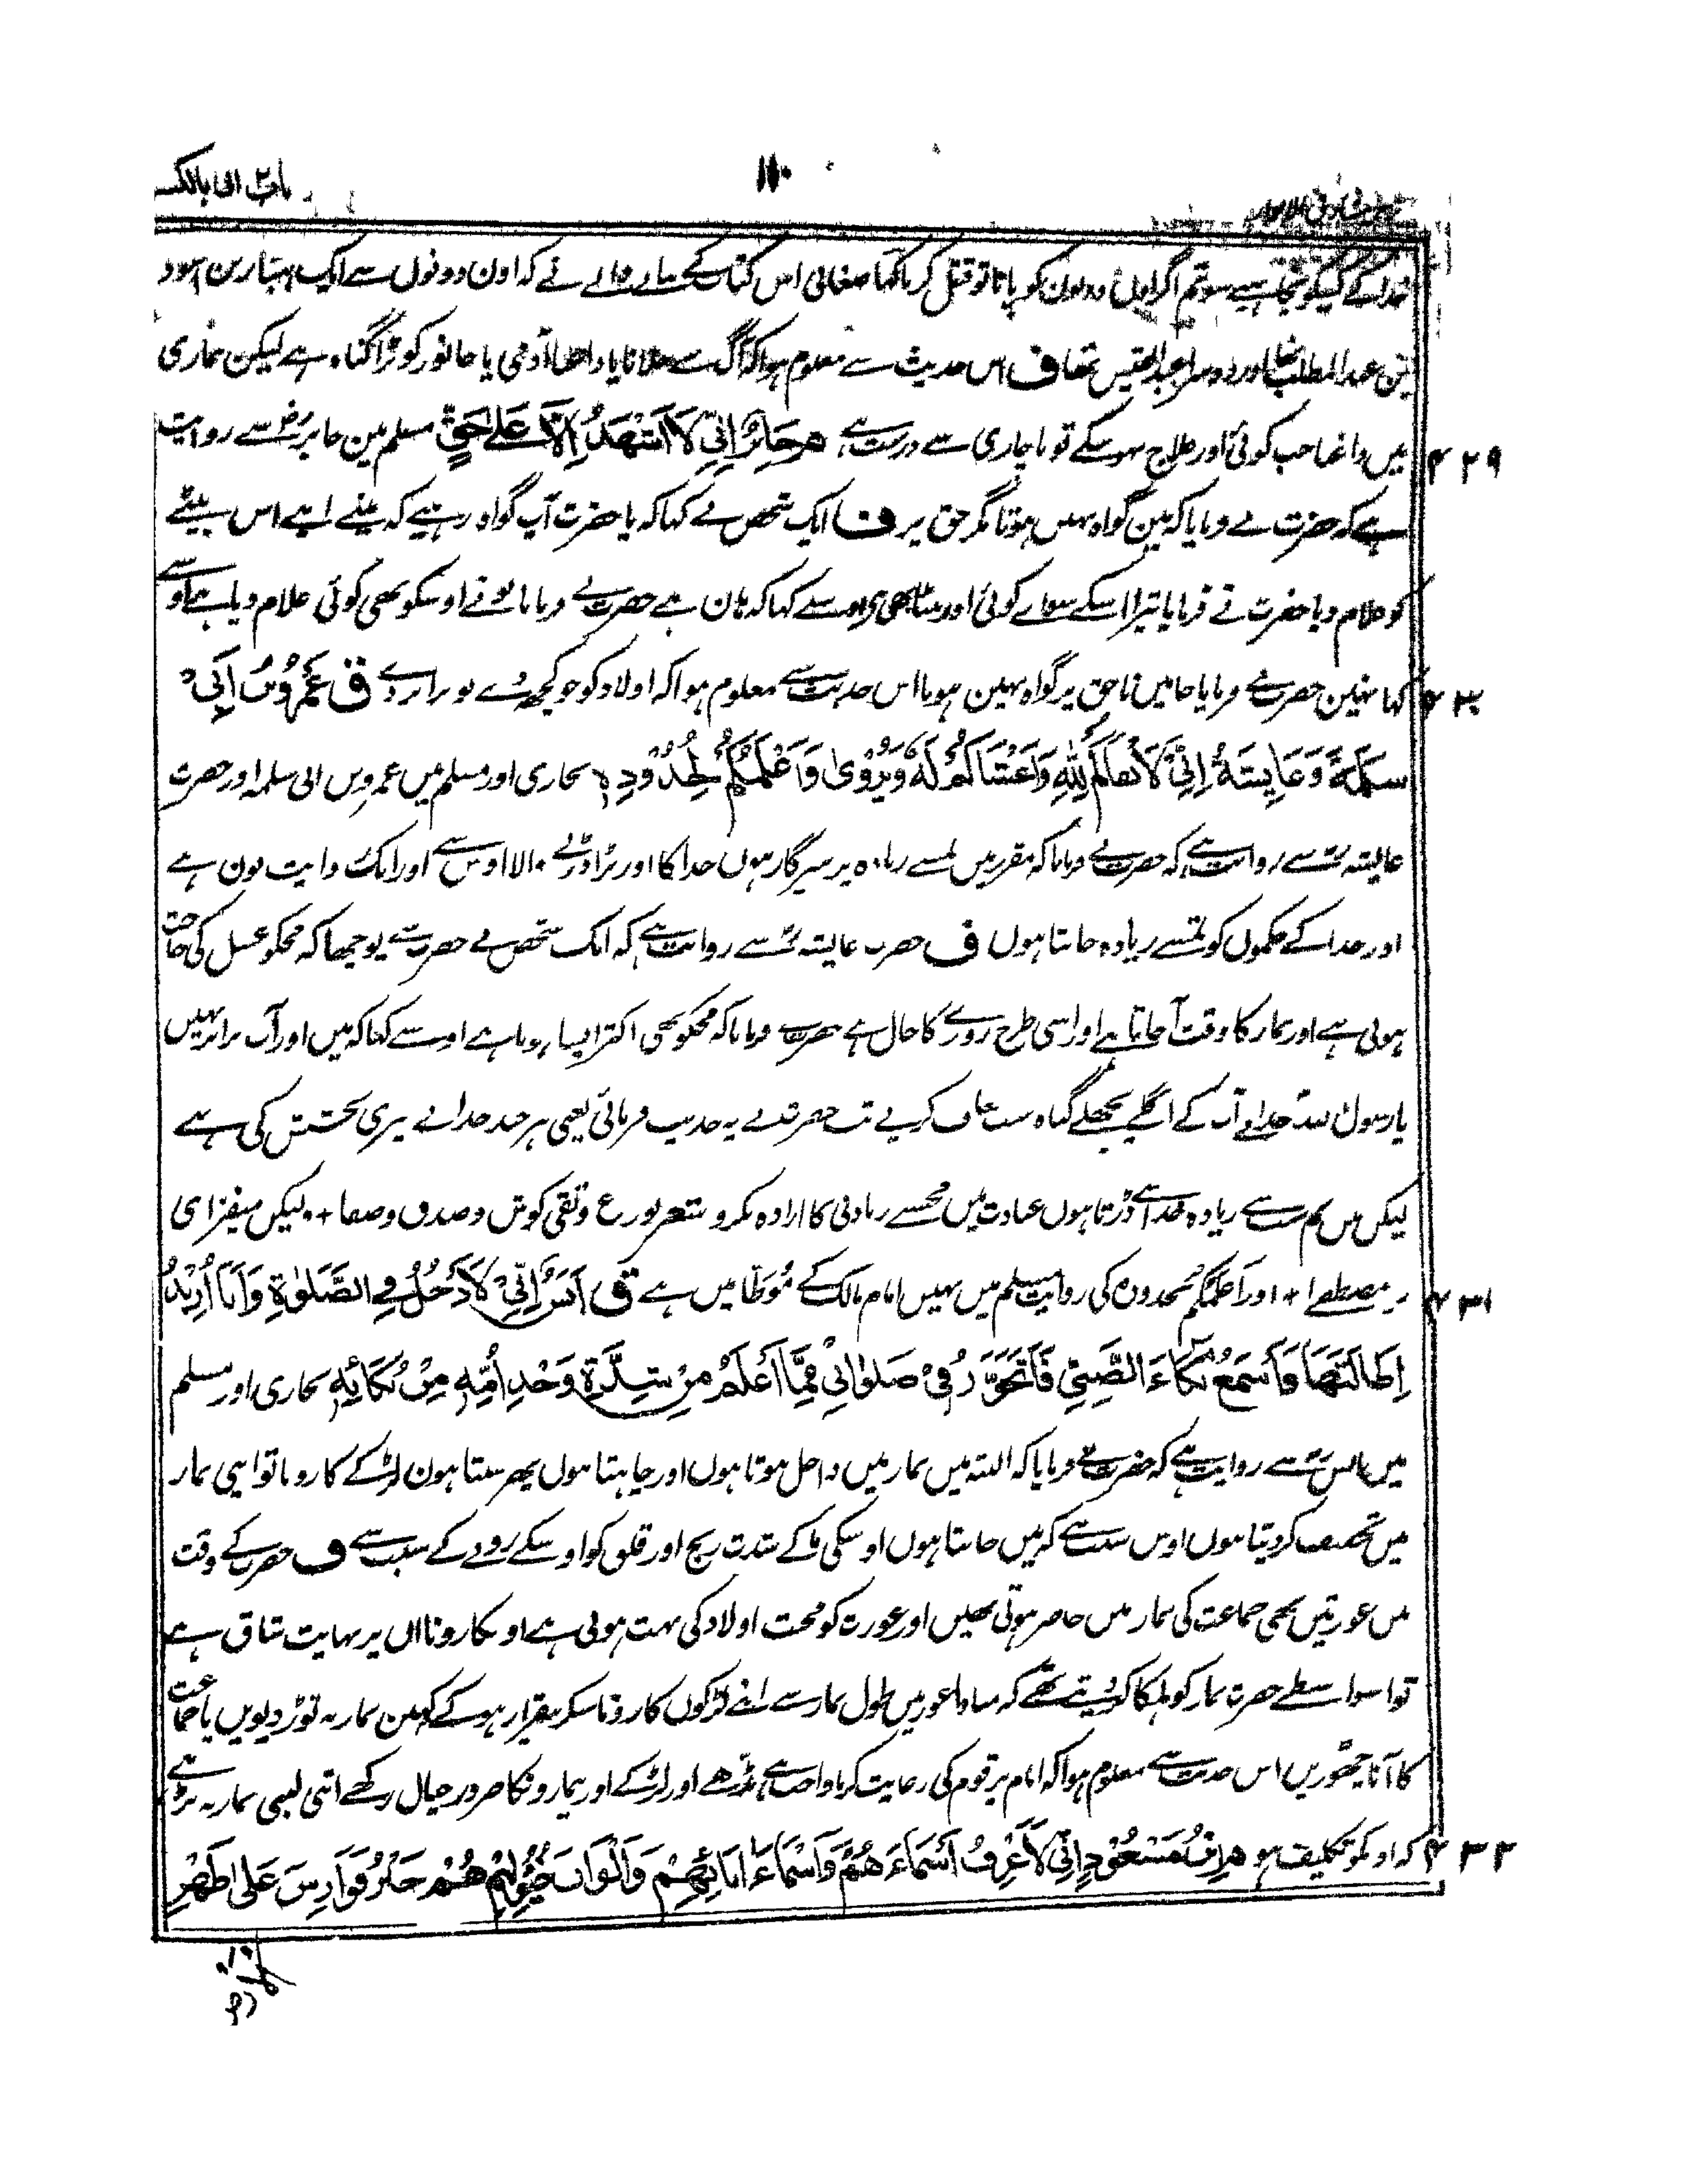 باب ۲ انی بالکسر
۱۱۰
خدا کے کسیکو نچاہیے سو تم اگر اون دونون کو پانا تو قتل کرنا کہا صغانی اس کتاب کے بنانے والے نے کہ اون دونوں سے ایک ہبّار بن اسود
بن عبد المطلب تھا اور دوسرا عبد القیس تھا ف اس حدیث سے معلوم ہوا کہ آگ سے جلانا یا داغنا آدمی یا جانور کو بڑا گناہ ہے لیکن بیماری
میں داغنا جب کوئی اور علاج نہو سکے تو ناچاری سے درست ہے م جَابِرٌ اِنِّي لَا اَشْهَدُ اِلَّا عَلٰى حَقٍّ مسلم مین جابرؓ سے روایت
۴۲۹
ہے کہ حضرت نے فرمایا کہ مین گواہ نہیں ہوتا مگر حق پر ف ایک شخص نے کہا کہ یا حضرت آپ گواہ رہیے کہ مینے اپنے اس بیٹے
کو غلام دیا حضرت نے فرمایا تیرا اسکے سوا کوئی اور بیٹا بھی ہے اوسنے کہا کہ ہان ہے حضرت نے فرمایا تونے اوسکو بھی کوئی غلام دیا ہے اوسنے
کہا نہین حضرت نے فرمایا جا میں ناحق پر گواہ نہین ہوتا اس حدیث سے معلوم ہوا کہ اولاد کو جو کچھ دے تو برابر دے ق عَمْرُو بْنُ اَبِيْ
۴۳۰
سَلَمَةَ وَعَائِشَةُ اِنِّيْ لَاَتْقَاكُمْ لِلّٰهِ وَاَخْشَاكُمْ لَهٗ وَيُرْوٰى وَاَعْلَمُكُمْ بِحُدُوْدِهٖ بخاری اور مسلم میں عمرو بن ابی سلمہ اور حضرت
عایشہؓ سے روایت ہے کہ حضرت نے فرمایا کہ مقرر میں تمسے زیادہ پرہیزگار ہوں خدا کا اور بڑا ڈرنے والا اوس سے اور ایک روایت یون ہے
اور خدا کے حکموں کو تمسے زیادہ جانتا ہوں ف حضرت عایشہؓ سے روایت ہے کہ ایک شخص نے حضرت سے پوچھا کہ مجکو غسل کی حاجت
ہوتی ہے اور نماز کا وقت آجاتا ہے اور اسی طرح روزے کا حال ہے حضرت نے فرمایا کہ مجکو بھی اکثر ایسا ہوتا ہے اوسنے کہا کہ میں اور آپ برابر نہیں
یا رسول اللہ خدا نے آپ کے اگلے پچھلے گناہ سب معاف کر دیے تب حضرت نے یہ حدیث فرمائی یعنی ہر چند خدا نے میری بخشش کی ہے
لیکن میں تم سب سے زیادہ خدا سے ڈرتا ہوں عبادت میں مجھسے زیادتی کا ارادہ مکرو شعر بورع و تقی کوش و صدق و صفا + ولیکن میفزای
بر مصطفے + اور اَعْلَمُكُمْ بحدودہ کی روایت مسلم میں نہیں امام مالک کے مُوَطَّا میں ہے ق اَنَسٌ اِنِّيْ لَاَدْخُلُ فِي الصَّلٰوةِ وَاَنَا اُرِيْدُ
۴۳۱
اِطَالَتَهَا فَاَسْمَعُ بُكَاءَ الصَّبِيِّ فَاَتَجَوَّزُ فِيْ صَلٰوتِيْ مِمَّا اَعْلَمُ مِنْ شِدَّةِ وَجْدِ اُمِّهٖ مِنْ بُكَائِهٖ بخاری اور مسلم
میں انسؓ سے روایت ہے کہ حضرت نے فرمایا کہ البتہ میں نماز میں داخل ہوتا ہوں اور چاہتا ہوں پھر سنتا ہون لڑکے کا رونا تو اپنی نماز
میں تخفیف کر دیتا ہوں اوس سبب سے کہ میں جانتا ہوں اوسکی ما کے شدت رنج اور قلق کو اوسکے رونے کے سبب سے ف حضرت کے وقت
میں عورتیں بھی جماعت کی نماز میں حاضر ہوتی تھیں اور عورت کو محبت اولاد کی بہت ہوتی ہے اونکا رونا اُن پر نہایت شاق ہے
تو اسواسطے حضرت نماز کو ہلکا کر دیتے تھے کہ مبادا عورتیں طول نماز سے اپنے لڑکوں کا رونا سنکر بیقرار ہو کے کہین نماز نہ توڑ دیویں یا جماعت
کا آنا چھوڑیں اس حدیث سے معلوم ہوا کہ امام پر قوم کی رعایت کرنا واجب ہے بڈھے اور لڑکے اور بیمارونکا ضرور خیال رکھے اتنی لمبی نماز نہ پڑھے
کہ اونکو تکلیف ہو م اِبْنُ مَسْعُوْدٍ اِنِّيْ لَاَعْرِفُ اَسْمَاءَهُمْ وَاَسْمَاءَ اٰبَائِهِمْ وَاَلْوَانَ خُيُوْلِهِمْ هُمْ خَيْرُ فَوَارِسَ عَلٰى ظَهْرِ
۴۳۲